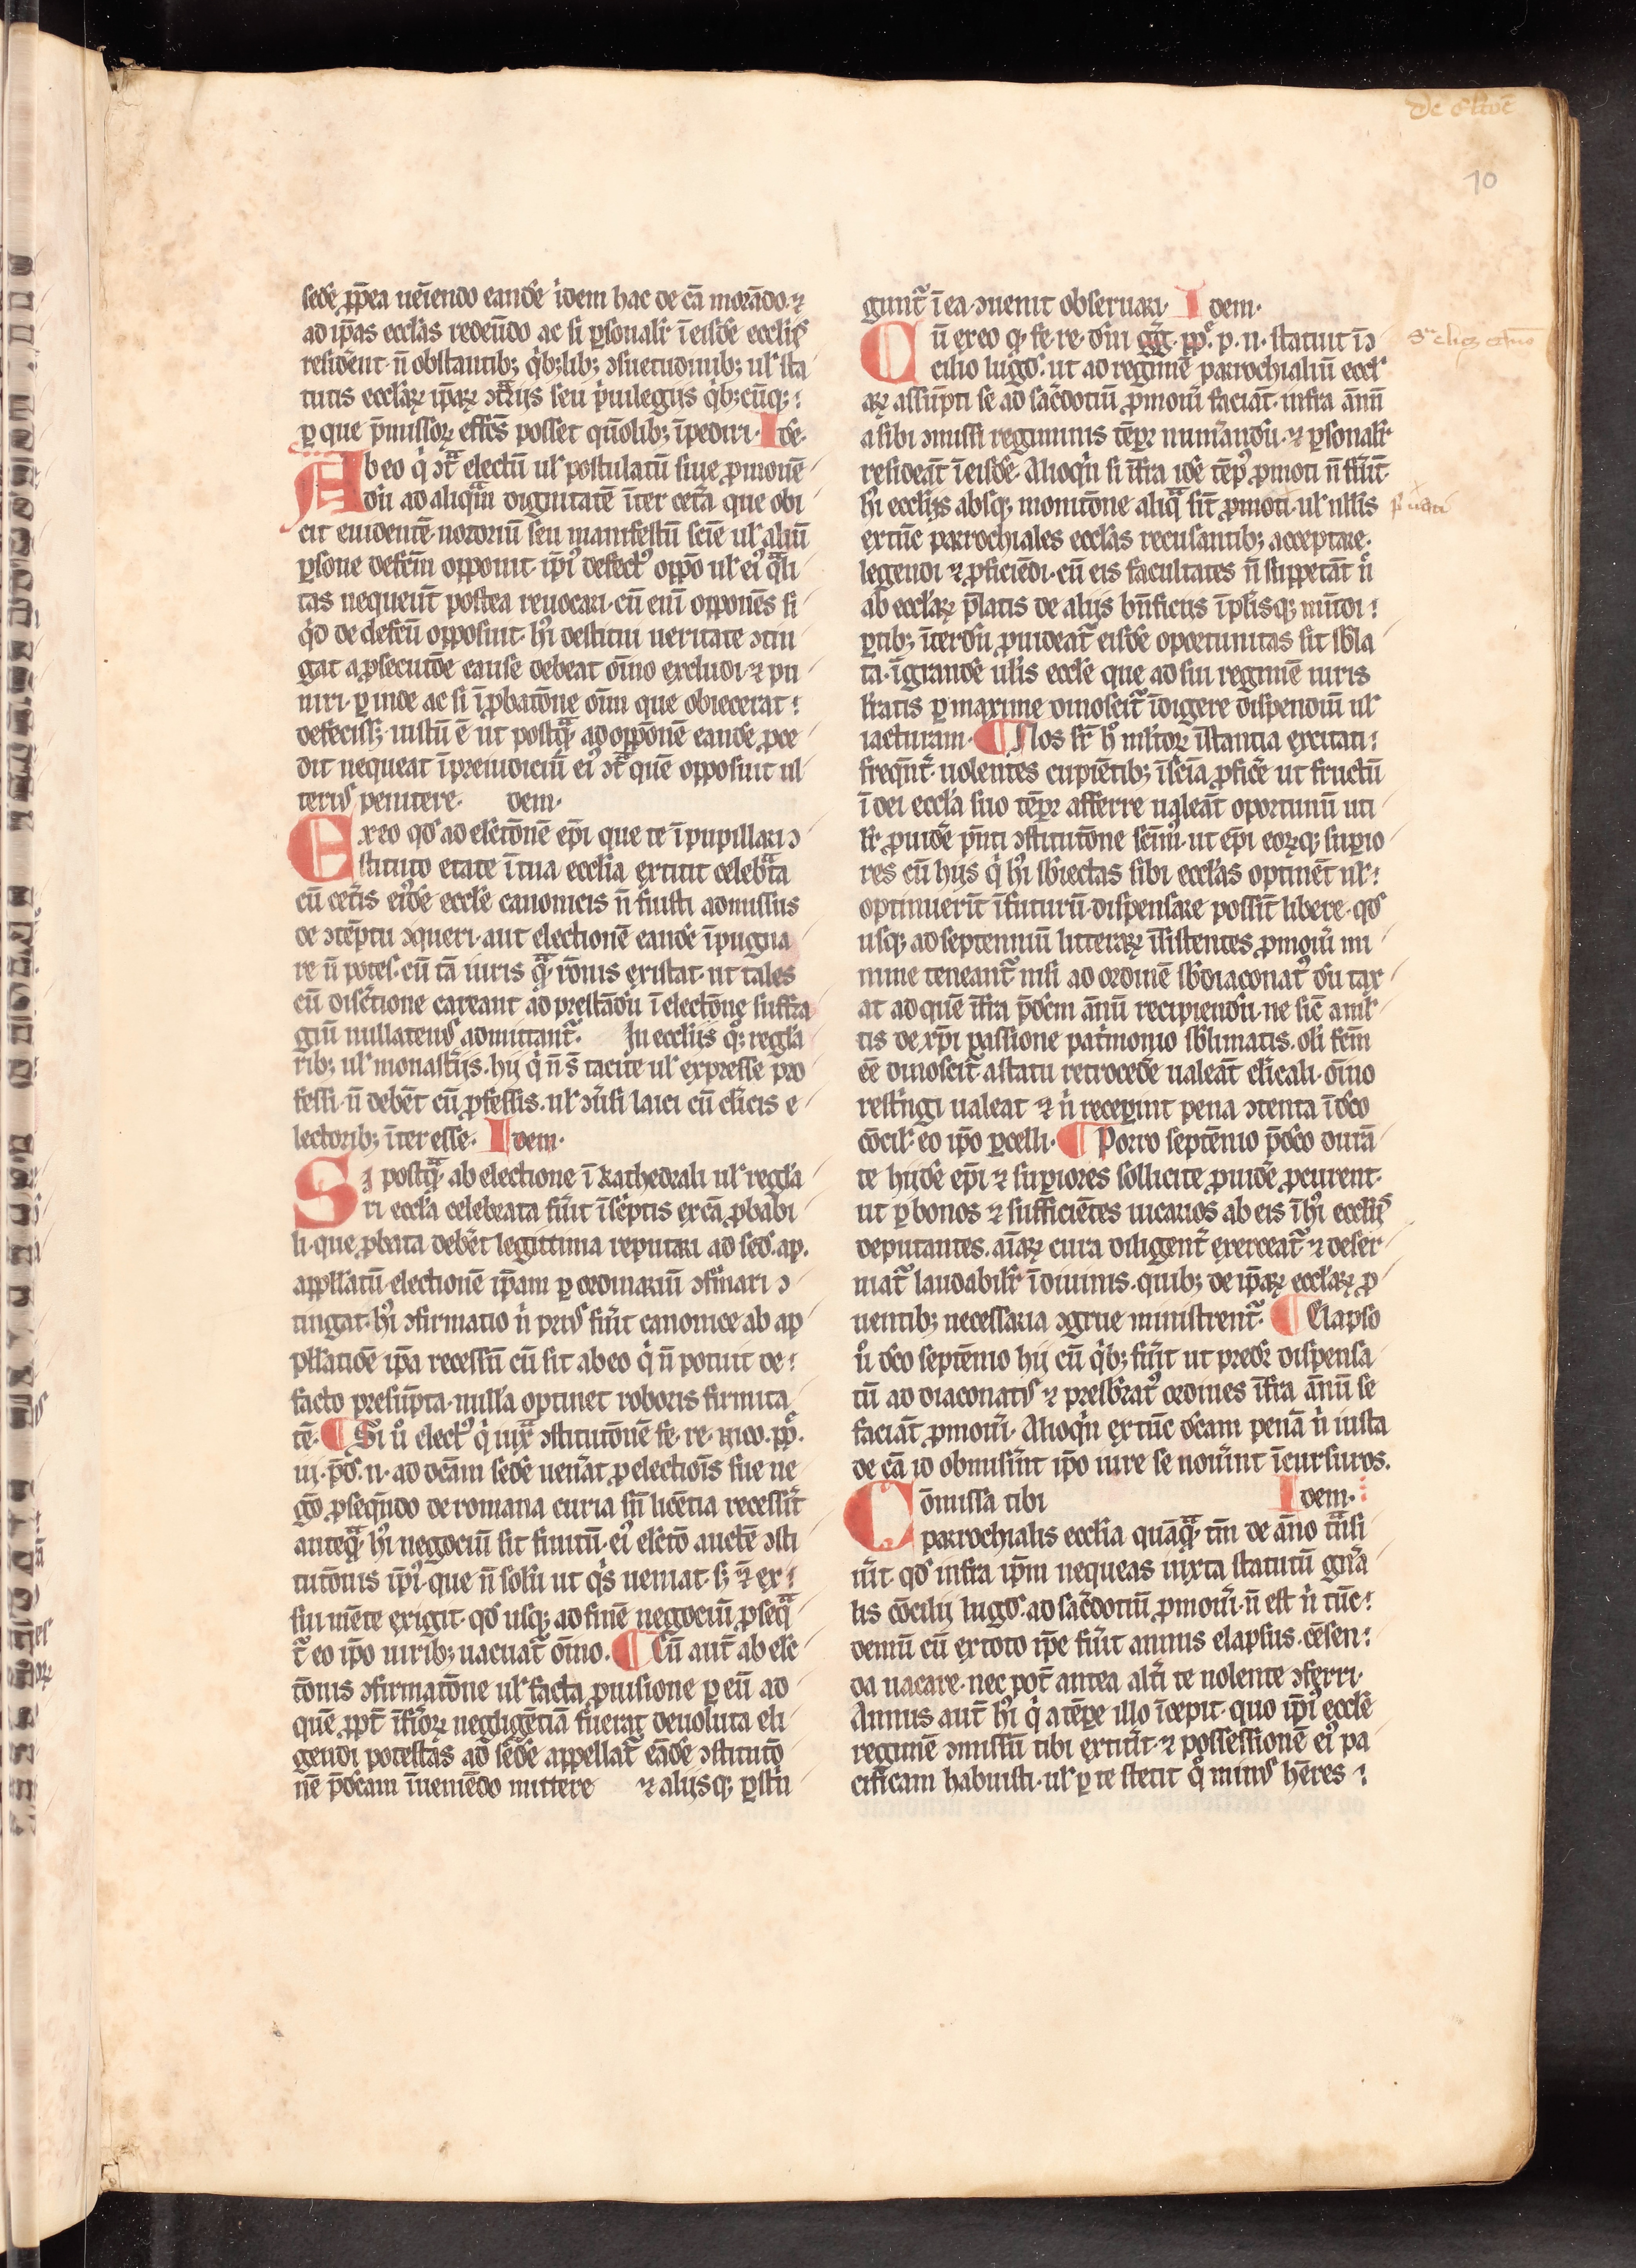 De elcōe
10
sede ꝓp̄ea ueīendo eandē idem hac de cā morādo· ⁊
ad ip̄as eccl̄as redeūdo ac si ꝑsonalr̄ ī eisdē ecclīs
resident· n̄ obstantib; qͥb;lib; ↄsuetudinib; ul̓ sta
tutis eccl̄aꝝ ip̄aꝝ ↄtͣrijs seu pͥuilegijs qͥb;cūq;
ꝑ que p̄missoꝝ effc̄s posset qn̄olib; īpediri· Idē·
Ab eo qͥ ↄtͣ electū ul̓ postulatū siue ꝓmouē
dū ad aliqͣm dignitatē īter cet̄a que obi
cit euidentē· notoriū seu manifestū sciē ul̓ aliū
ꝑsone defcm̄ opponit ip̄iꝰ defectꝰ oppō ul̓ eiꝰ qͣli
tas nequeūt postea reuocari· cū eni opponēs si
qͥd de defcū opposuit· hꝰi destitui ueritate ↄtin
gat a ꝓsecutōe cause debeat oīno excludi· ⁊ pu
niri· ꝑ inde ac si ī ꝓbatōne oīm que obiecerat
defecisse· iustū ē ut postqͣ· ad oppōnē eandē ꝓce
dit nequeat ī preiudiciū eiꝰ ↄtͣ quē opposuit ul
teriꝰ penitere· dem·
Ex eo qd̓ ad elctōnē ep̄i que te ī pupillari ↄ
stituto etate ī tua ecclīa extitit celebͣta
cū cet̄is eiꝰdē eccl̄e canonicis n̄ fuisti admissus
de ↄtēptu ↄqueri· aut electionē eandē īpugna
re n̄ potes· cū tā iuris qͣ· rōnis existat· ut tales
cū disc̄tione careant ad prestādū ī electōne suffra
giū nullatenꝰ admittant̄· In ecclīis qͦ; regl̄a
rib; ul̓ monast̄ijs· hij qͥ n̄ s̄ tacite ul̓ expresse pro
fessi· n̄ debēt cū ꝓfessis· ul̓ ↄūsi laici cū cl̄icis e
lectorib; īteresse· Idem·
Si postqͣ· ab electione ī kathedrali ul̓ regl̄a
ri eccl̄a celebrata fūit ī sc̄ptis ex cā ꝓbabi
li· que ꝓbata debēt legittima reputari ad sed̓· ap·
appll̄atū· electionē ip̄am ꝑ ordinariū ↄfirͥmari ↄ
tingat· hꝰi ↄfirmatio n̄ priꝰ fūit canonice ab ap
pll̄atiōe ip̄a recessū cū sit ab eo qͥ n̄ potuit de
facto presūpta· nulla optinet roboris firmita
tē· ¶ Si ū electꝰ qͥ iuxͣ ↄstitutōnē fe· re· nico· pp̄·
iij· p̄d̓· n· ad dcam̄ sedē uen̄at ꝓ electiōis sue ne
gō ꝓseqn̄do de romana curia sn̄ licētia recessit̄
anteqͣ· hꝰi negociū sit finitū· eiꝰ elctō auctē ↄsti
tutōnis ip̄iꝰ· que n̄ solū ut qͥs ueniat· s; ⁊ ex
siu mēte exigit qd̓ usq; ad finē negociū ꝓseqͣ
t̄ eo ip̄o uirib; uacuat̄ oīno· ¶ Cū aut̄ ab elc
tōnis ↄfirmatōne ul̓ facta ꝓuisione ꝑ eū ad
quē ꝓpt̄ īfīoꝝ negligētiā fuerat deuoluta eli
gendi potestas ad sedē appellat̄ eādē ↄstitutō
nē p̄dcam īueniēdo mittere ⁊ alijsq; ꝑstri
gunt̄ ī ea ↄuenit obseruari· Idem·
Cū ex eo q· fe· re· dn̄i gg̓· pp̄· p· n· statuit ī ↄ
cilio lugd̓· ut ad regimē parrochialiū eccl̓
aꝝ assūpti se ad sac̄dotiū ꝓmoūi faciāt· infra ānū
a sibi ↄmissi regiminis tēpr̄ num̄andū· ⁊ ꝑsonalr̄
resideāt ī eisdē· Alioqͥn si īfra idē tēpꝰ ꝓmoti n̄ fūīt·
hꝰi ecclīis absq; monitōne aliqͣ sīt ꝓmoti· ul̓ nllis
extūc parrochiales eccl̄as recusantib; acceptare·
legendi ⁊ ꝓficiēdi· cū eis facultates n̄ suppetāt n̄
ab eccl̄aꝝ p̄latis de alijs bn̄ficijs īplīsq; mūdi
ꝑtib; īterdū ꝓuideat̄ eisdē oportunitas sit sbl̄a
ta· ī grandē ul̄is eccl̄e que ad sui regimē uiris
lr̄atis ꝑ maxime dinoscit̄ īdigere dispendiū ul̓
iacturam· ¶ Nos sr̄ hꝰ ml̄toꝝ īstantia excitati
freqn̄t̄· uolentes cupiētib; ī sc̄ia ꝓficē ut fructū
ī dei eccl̄a suo tēpr̄ afferre ualeāt oportunū uti
lr̄ ꝓuidē pn̄ti ↄstitutōne sēm̄ꝰ· ut ep̄i eoꝝq; supio
res cū hijs qͥ hꝰi sb̄iectas sibi eccl̄as optinēt ul̓
optinuerīt ī futurū· dispensare possīt libere· qd̓
usq; ad septenniū litterarꝝ īsistentes ꝓmoūi mi
nime teneant̄ nisi ad ordinē sb̄diaconatꝰ dū tax
at ad quē īfra p̄dcm ānū recipiendū· ne sic̄ aml̓
tis de xp̄i passione pat̄monio sb̄limatis· oli fcm̄
eē dinoscit̄· a statu retrocedē ualeāt cl̄icali· oīno
restͥngi ualeat ⁊ n̄ receꝑint pena ↄtenta ī dc̄o
cōcil̓ eo ip̄o ꝑcelli· ¶ Porro septēnio p̄dc̄o durā
te hijdē ep̄i ⁊ suꝑiores sollicite ꝓuidē ꝓcurent·
ut ꝑ bonos ⁊ sufficiētes uicarios ab eis ī hꝰi ecclīis
deputantes· aīaꝝ cura diligent̄ exerceat̄ ⁊ deser
uiat̄ laudabilr̄ ī diuinis· quib; de ip̄aꝝ eccl̄aꝝ ꝓ
uentib; necessaria ↄgrue ministrent̄· ¶ Elapso
ū dc̄o septēnio hij cū qͥb; fūit ut predr̄ dispensa
tū ad diaconatꝰ ⁊ presbratꝰ ordines īfra ānū se
faciāt ꝓmoūi· Alioqͥn extūc dcam penā n̄ iusta
de cā id obmisīnt ip̄o iure se noūint īcursuros·
Cōmissa tibi Idem·
parrochialis ecclīa quāqͣ· tm̄ de āno tn̄si
īit· qd̓ infra ip̄m nequeas iuxta statutū gn̄a
lis cōcilij lugd̓· ad sac̄dotiū ꝓmoūi· n̄ est n̄ tūc
demū cū extoto ip̄e fūit annus elapsus· cēsen
da uacare· nec pot̄ antea alt̄i te nolente ↄferri·
Annus aut̄ hꝰi qͥ a tēpe illo īcepit· quo ip̄iꝰ eccl̄e
regimē ↄmissū tibi extit̄it· ⁊ possessionē eiꝰ pa
cificam habuisti· ul̓ ꝑ te stetit qͦ minꝰ hēres